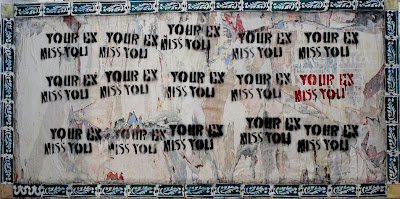 YOUR EX
MISS YOU
YOUR EX
MISS YOU
YOUR EX
MISS YOU
YOUR EX
MISS YOU
YOUR EX
MISS YOU
YOUR EX
MISS YOU
YOUR EX
MISS YOU
YOUR EX
MISS YOU
YOUR EX
MISS YOU
YOUR EX
MISS YOU
YOUR EX
MISS YOU
YOUR EX
MISS YOU
YOUR EX
MISS YOU
YOUR EX
MISS YOU
YOUR EX
MISS YOU